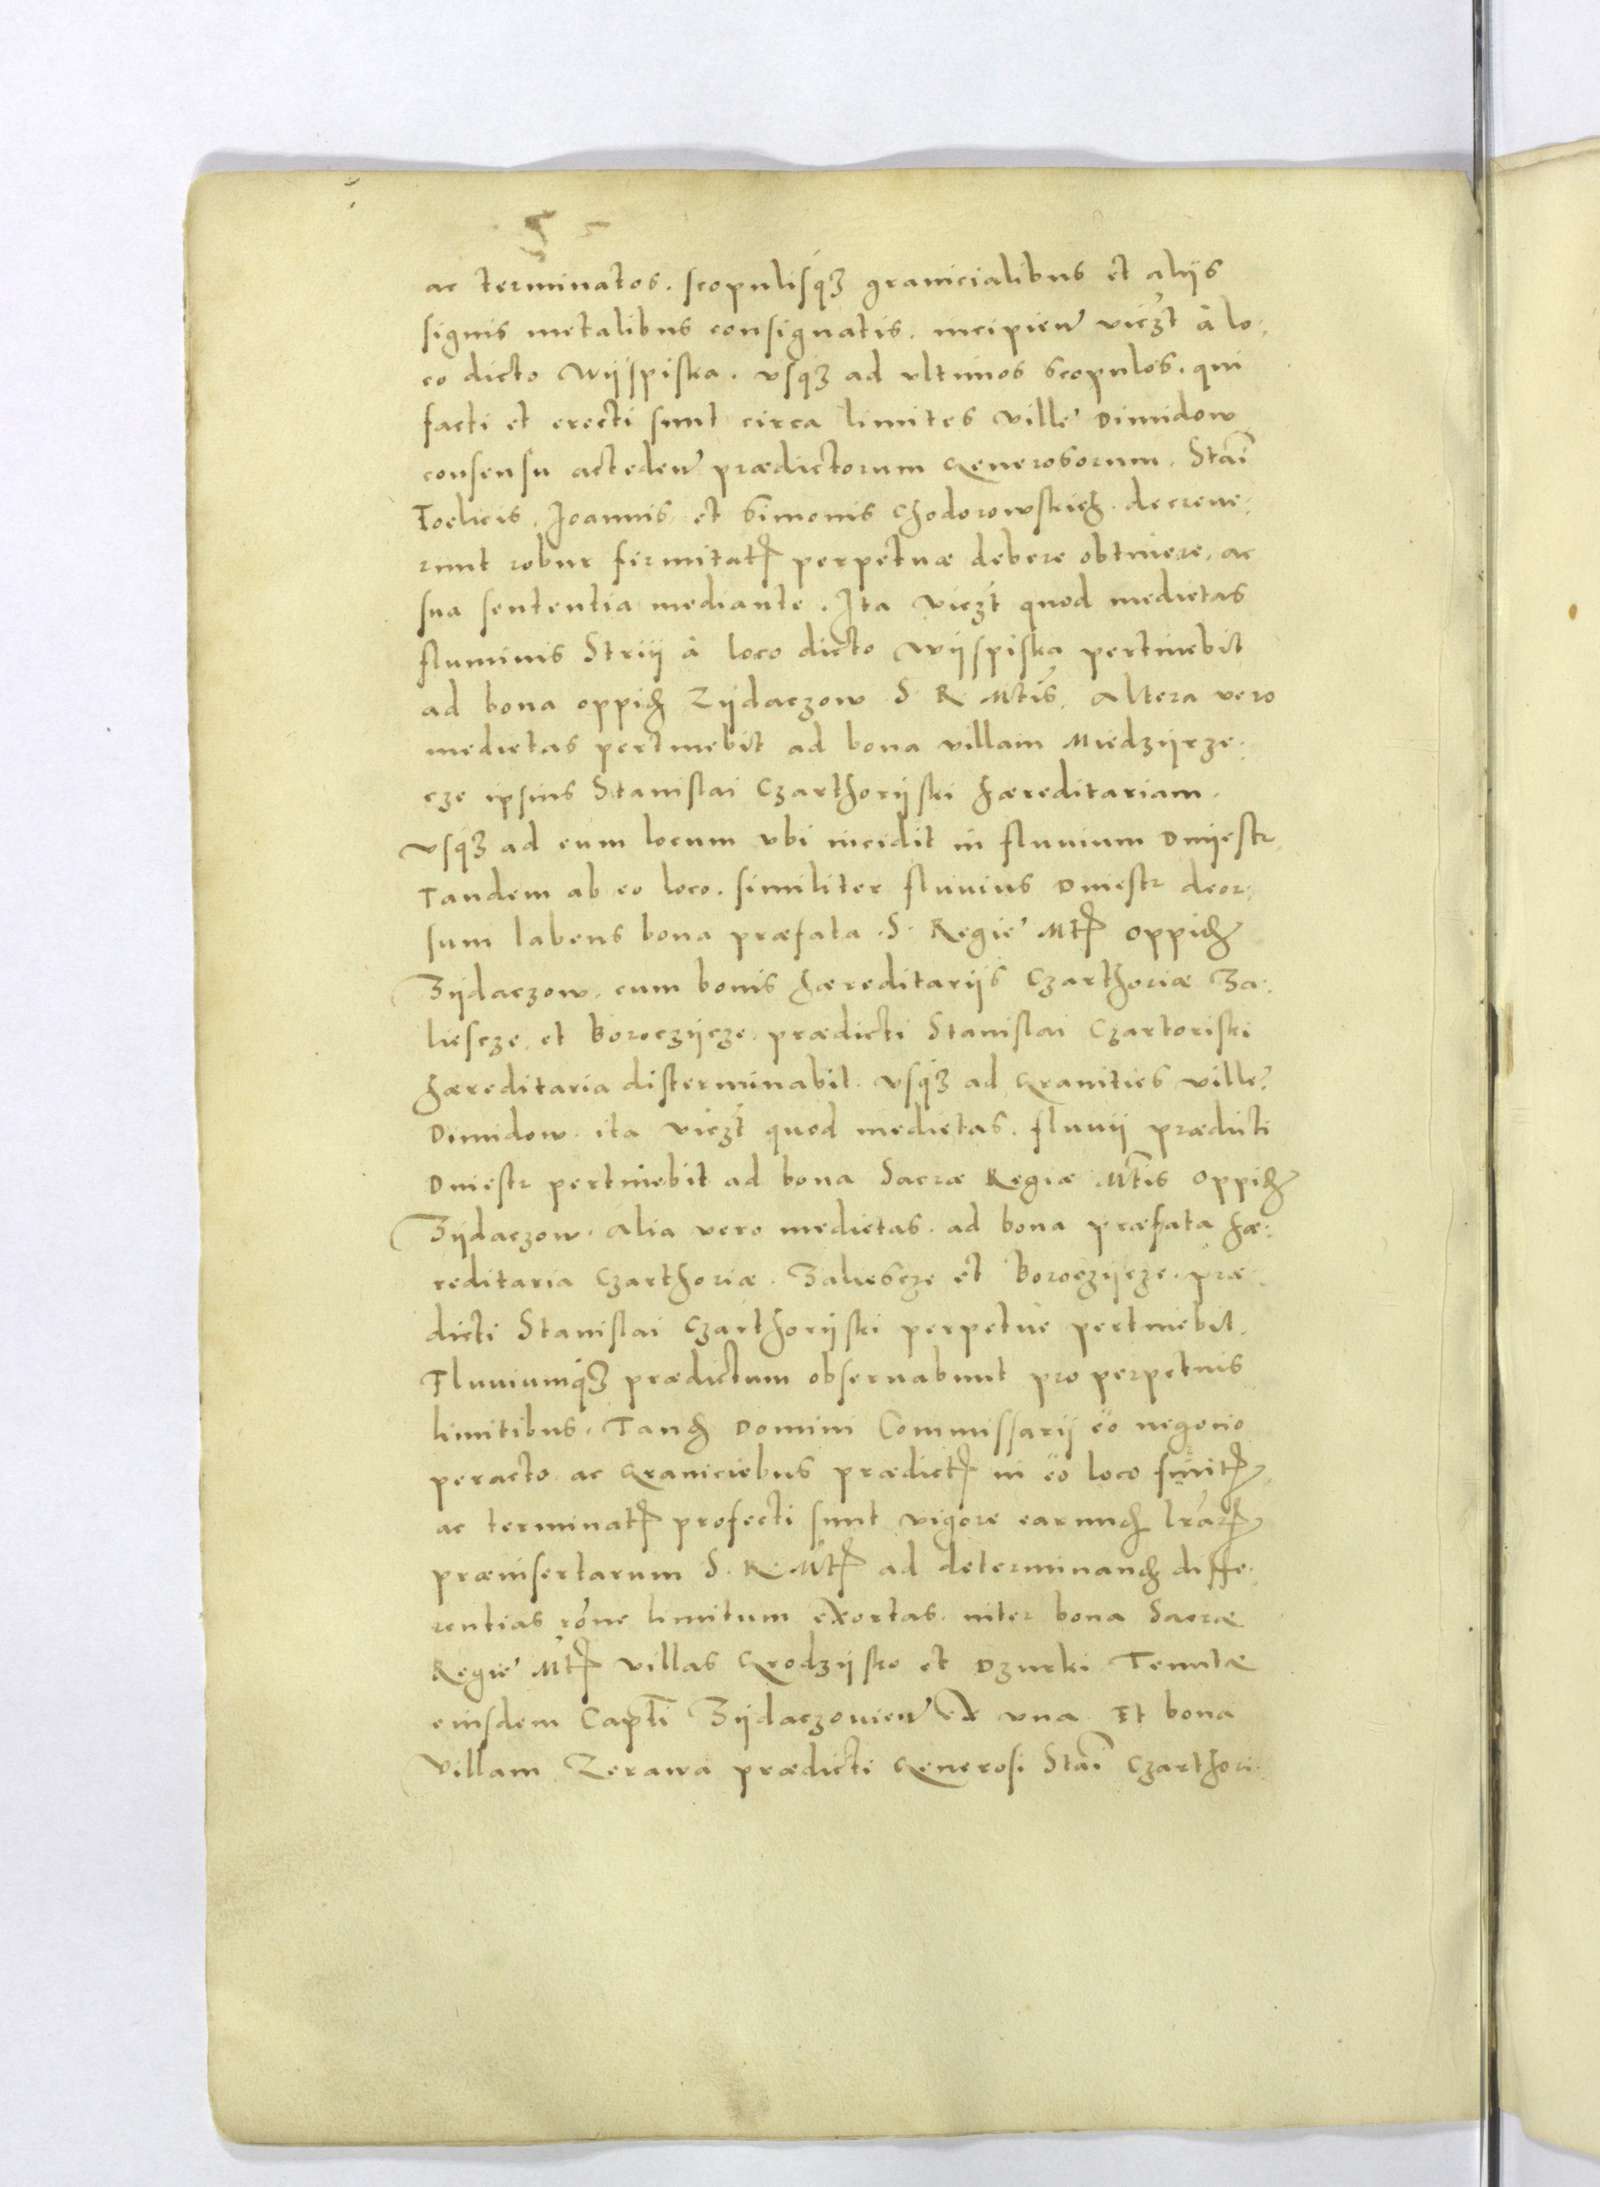 ac terminatos. scopulisq3 granicialibus et alijs
signis metalibus consignatis. incipien viczt à lo-
co dicto Wijspiska. vsq3 ad vltimos scopulos. qui
facti et erecti sunt circa limites ville Dimidow
consensu actedem prædictorum Generosorum. Stai
Foelicis. Joannis et Simonis Chodorowskich. decreue-
runt robur firmitatis perpetuæ debere obtinere. ac
sua sententia mediante. Ita viczt quod medietas
fluminis Strij à loco dicto Wijspiska pertinebit
ad bona oppidi Zijdaczow S. R. Mtis. Altera vero
medietas pertinebit ad bona villam Miedzijrze-
cze ipsius Stanislai Czarthorijski hæreditariam.
vsq3 ad eum locum vbi incidit in fluuium Dnijestr.
Tandem ab eo loco. similiter fluuius Dniestr deor-
sum labens bona præfata S. Regie Mtis oppidi
Zijdaczow. cum bonis hæreditarijs Czarthoriæ Za-
liescze. et Boroczijcze. prædicti Stanislai Czartoriski
hæreditaria disterminabit. vsq3 ad Granities ville
Dimidow. ita viczt quod medietas. fluuij prædicti
Dniestr pertinebit ad bona Sacræ Regiæ Mtis oppidi
Zijdaczow. Alia vero medietas. ad bona præfata hæ-
reditaria Czarthoriæ. Zaliescze et Boroczijcze. præ-
dicti Stanislai Czarthorijski perpetue pertinebit.
Fluuiumq3 prædictum obseruabunt pro perpetuis
limitibus. Tand Domini Commissarij eo negocio
peracto. ac Graniciebus prædictis in eo loco finitis
ac terminatis profecti sunt vigore earund lrarum
præinsertarum S. R. Mtis ad determinand diffe-
rentias rone limitum exortas. inter bona Sacræ
Regie Mtis villas Grodzijsko et Dzurki Tenutæ
eiusdem Capti Zijdaczouien ex vna. Et bona
Villam Zerawa prædicti Generosi Stai Czarthori-